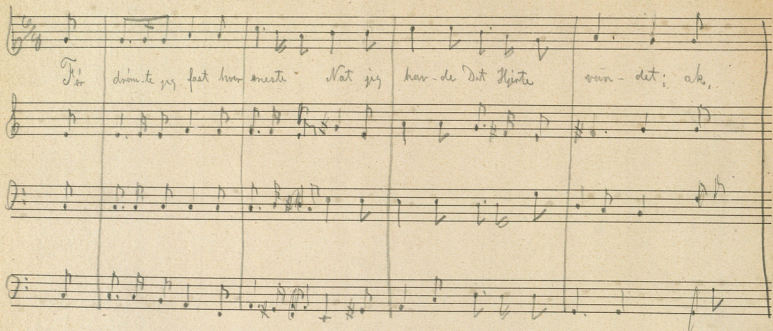 Før drömte jeg fast hver eneste Nat jeg hav-de Dit Hjerte vun-det; ak,